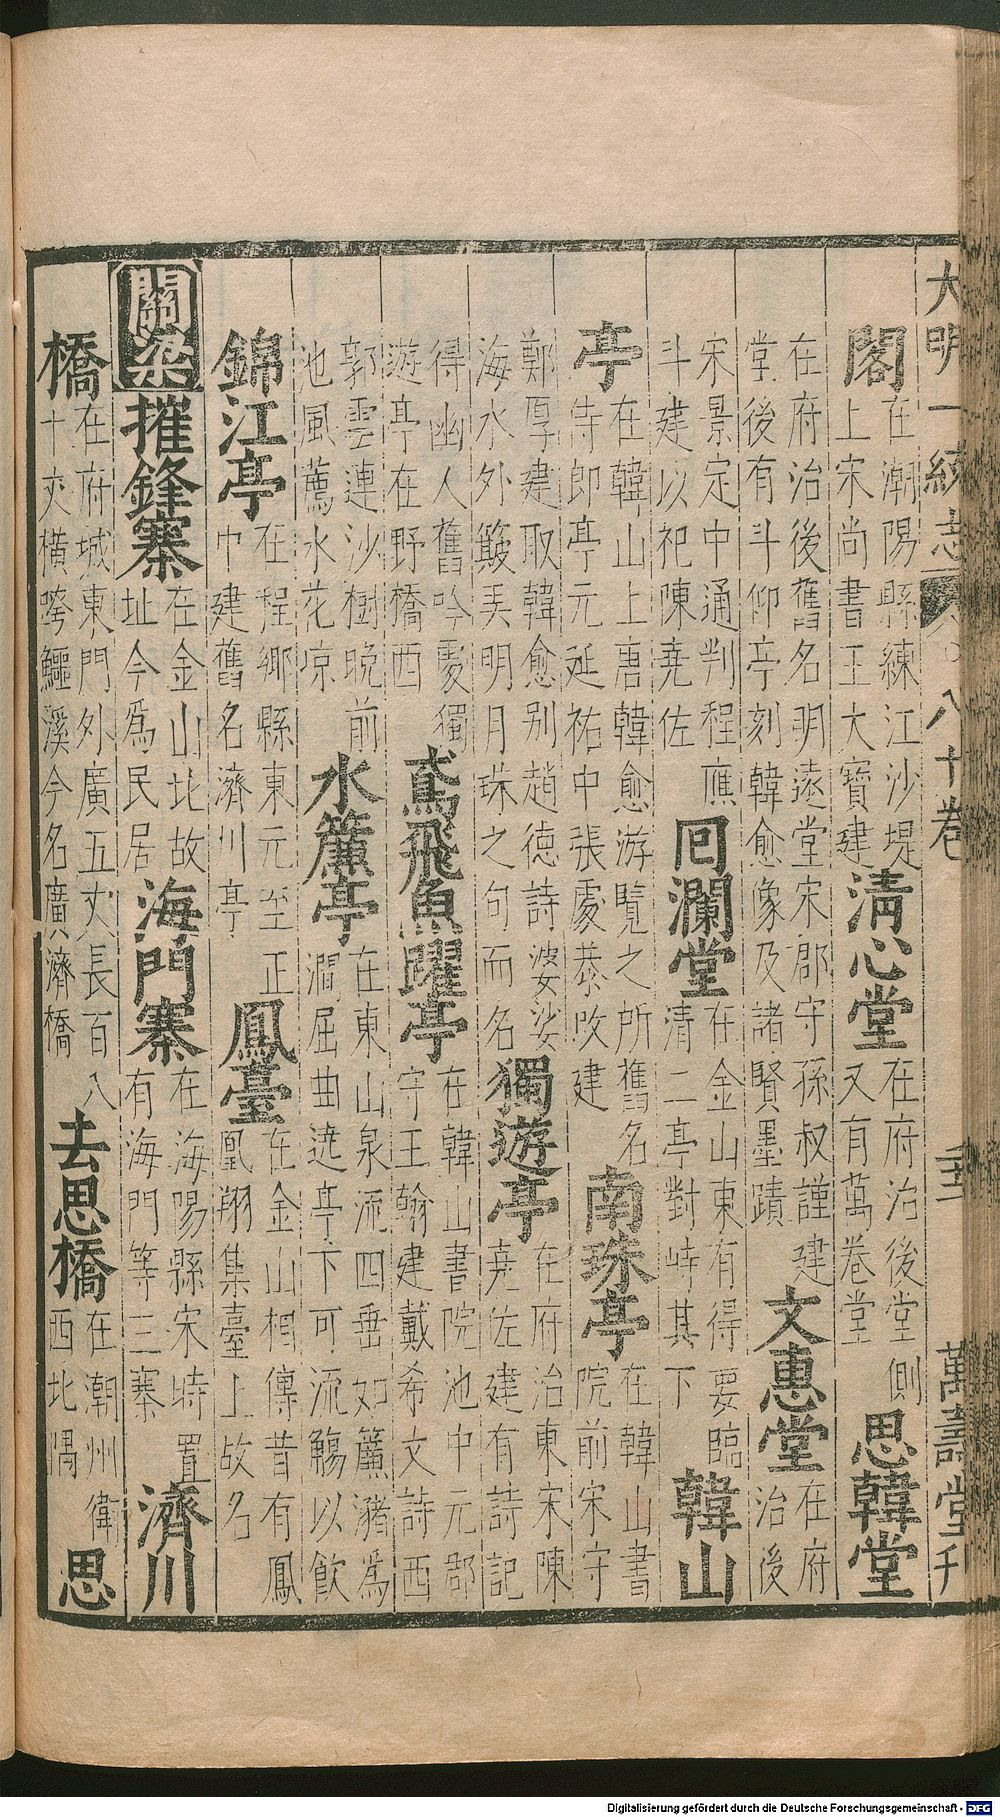 大明一統志 八十卷 萬壽堂刊
閣 在潮陽縣練江沙堤上宋尚書王大寶建 淸心堂 在府治後堂側又有萬卷堂 思韓堂
在府治後舊名明遠堂宋郡守孫叔謹建堂後有斗仰亭刻韓愈像及諸賢墨蹟 文惠堂 在府治後
宋景定中通判程應斗建以祀陳堯佐 回瀾堂 在金山東有得要臨清二亭對峙其下 韓山
亭 在韓山上唐韓愈游覽之所舊名侍郎亭元延祐中張處恭改建 南珠亭 在韓山書院前宋守
鄭厚建取韓愈别趙徳詩婆娑海水外簸弄明月珠之句而名 獨遊亭 在府治東宋陳堯佐建有詩記
得幽人舊吟處獨遊亭在野橋西 鳶飛魚躍亭 在韓山書院池中元郡守王翰建戴希文詩西
郭雲連沙樹晚前池風薦水花凉 水簾亭 在東山泉流四垂如簾瀦爲澗屈曲遶亭下可流觴以飲
錦江亭 在程鄉縣東元至正中建舊名濟川亭 鳳臺 在金山相傳昔有鳳凰翔集臺上故名
關梁 摧鋒寨 在金山北故址今爲民居 海門寨 在海陽縣宋時置有海門等三寨 濟川
橋 在府城東門外廣五丈長百八十丈横跨鱷溪今名廣濟橋 去思橋 在潮州衛西北隅 思
Digitalisierung gefördert durch die Deutsche Forschungsgemeinschaft - DFG